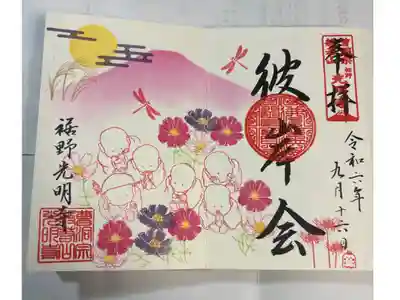 奉拝
令和六年
九月十六日
彼岸会
裾野光明寺